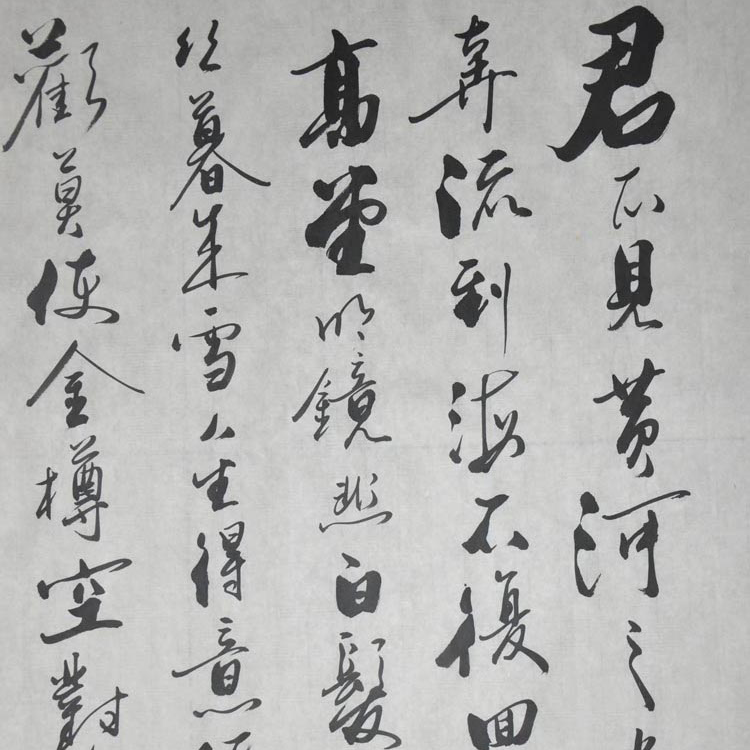 君不見黄河之
奔流到海不復回
高堂明鏡悲白髮
絲暮成雪人生得意
歡莫使金樽空對